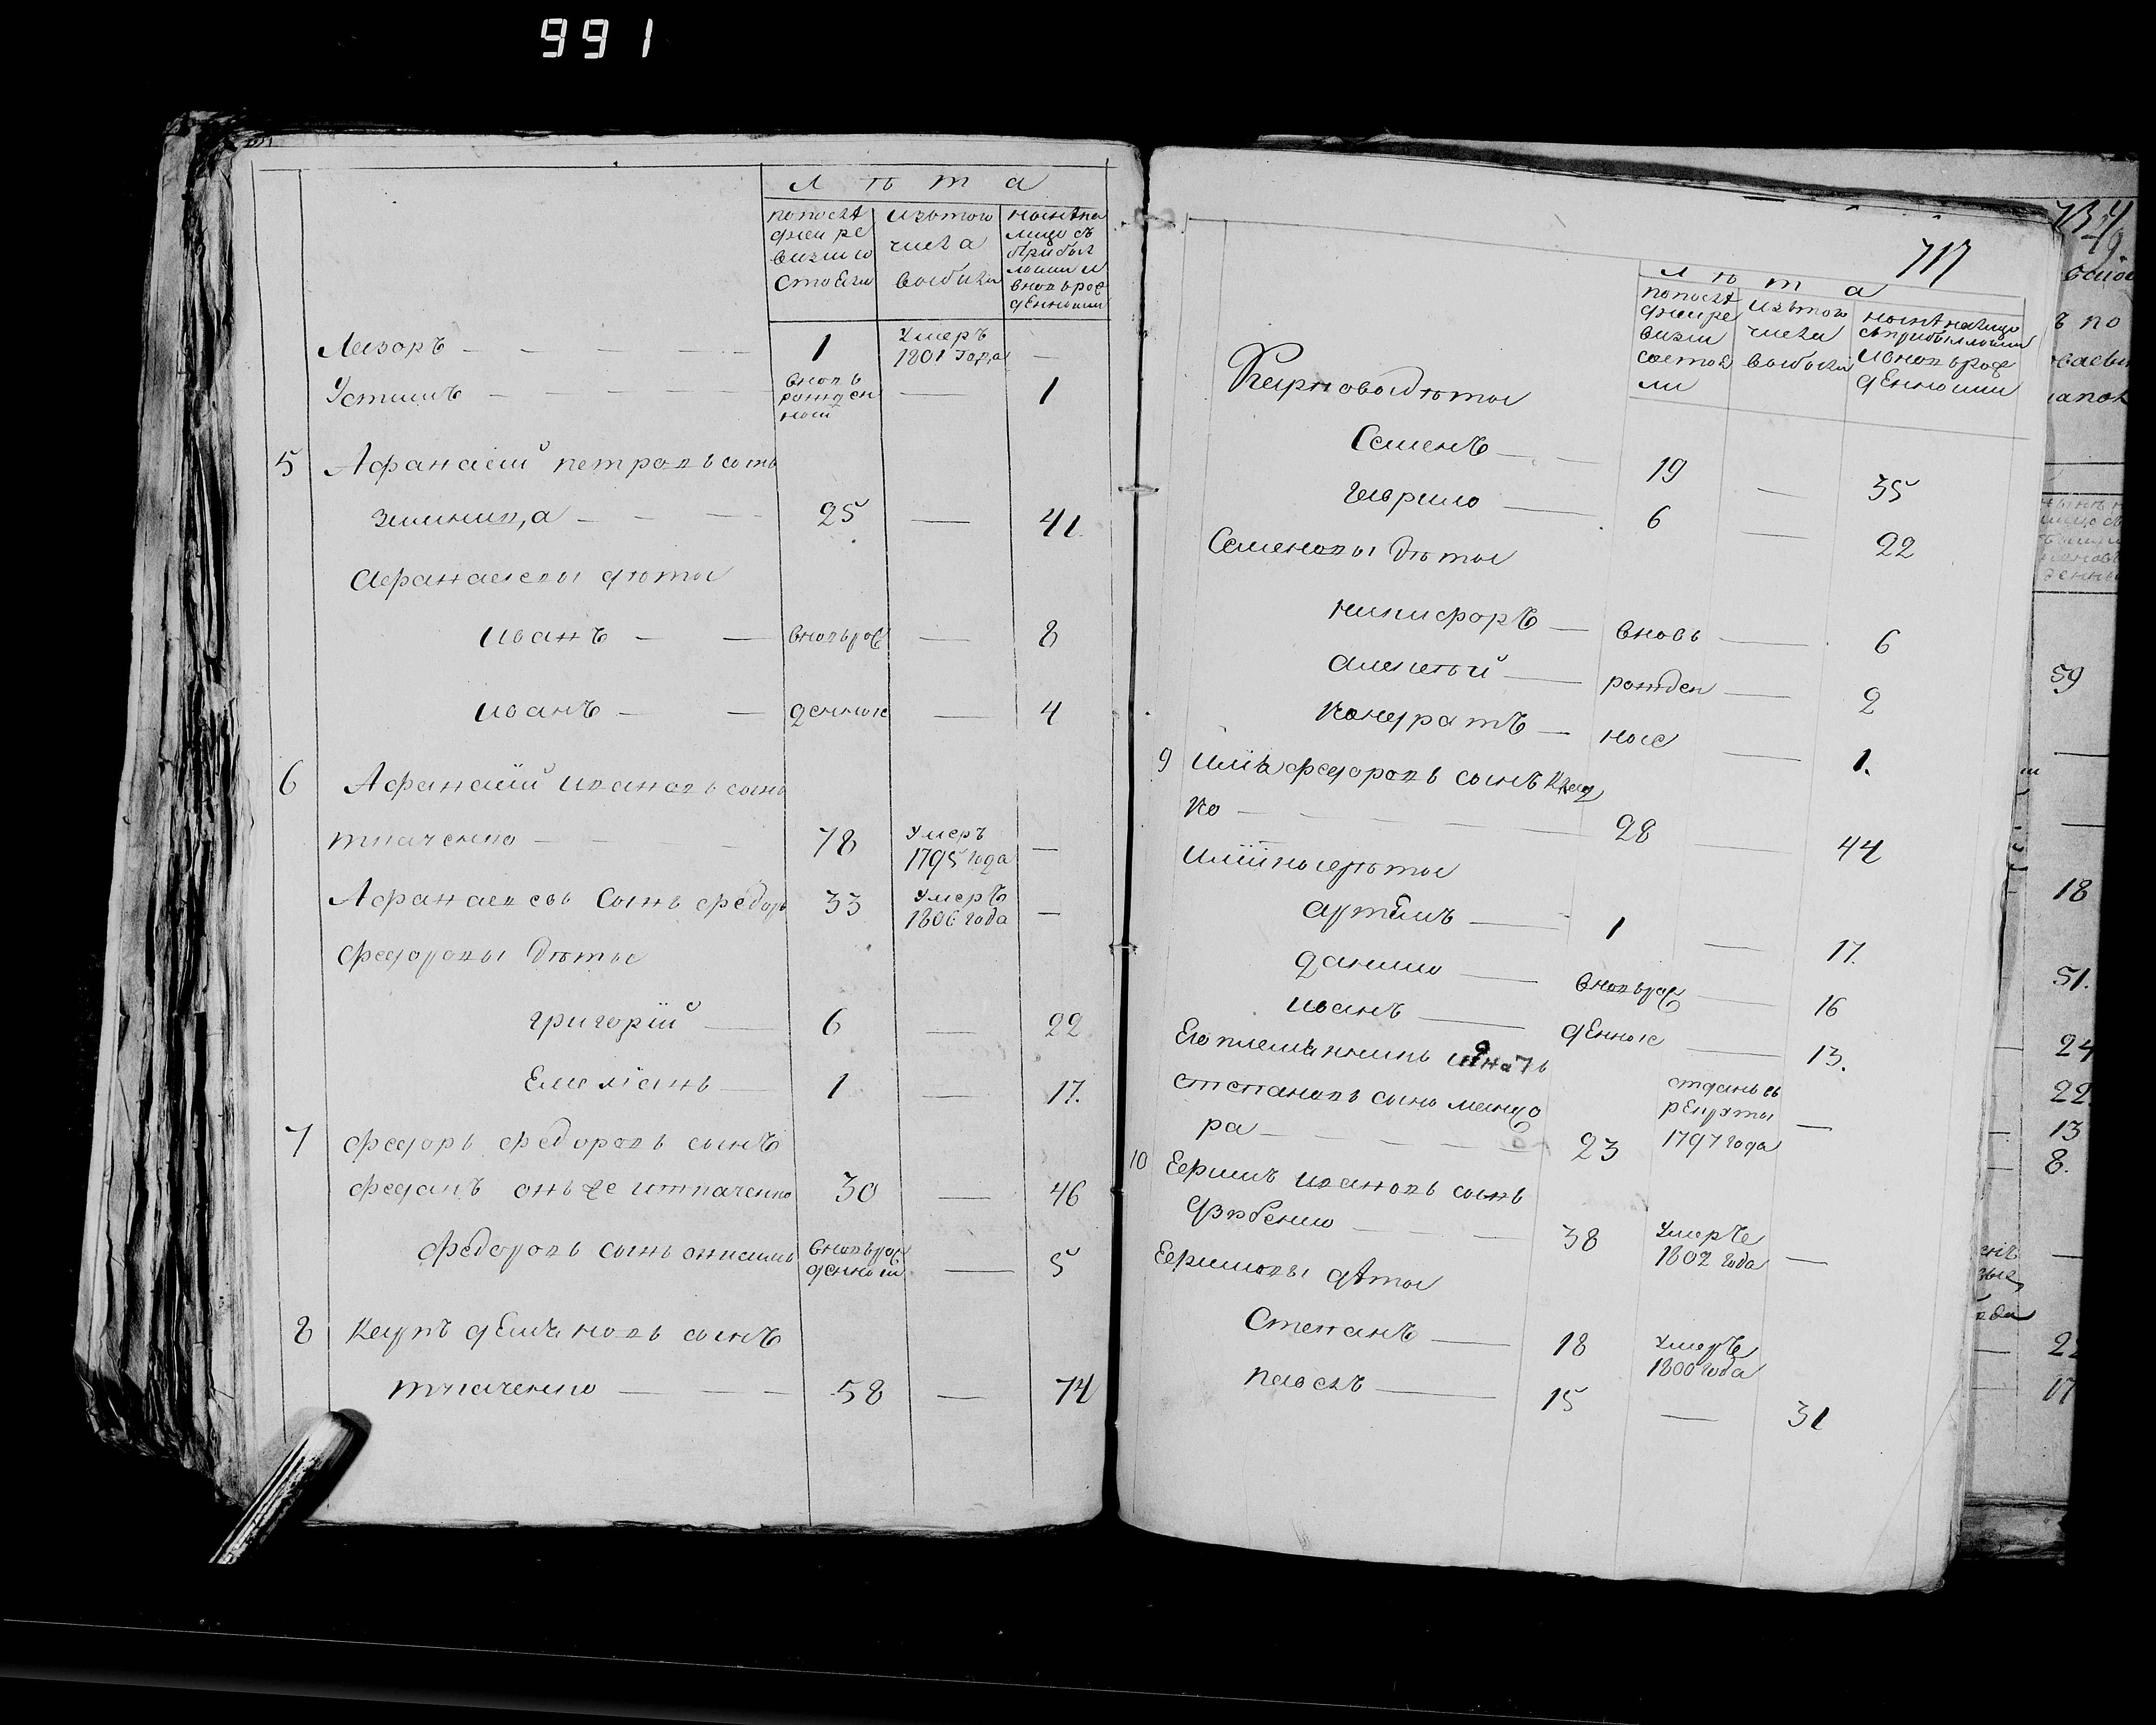 991
лѣта
по послѣ
дней ре
визии со
стояли
изътого
числа
выбыли
нынѣ на
лицо съ
прибыл
лыми и
вновь рож
денными
Лазоръ 1 Умеръ 1801 года —
Устимъ вновь рожден ной — 1
5 Афанасий петровъ сынъ
25 — 41
Афанасьевы дѣты
иванъ вновьрож — 8
иванъ денные — 4
6 Афанасий ивановъ сынъ
ткаченко 78 Умеръ 1795 года —
Афанасьевъ сынъ федоръ 33 Умеръ 1806 года —
федоровы дѣты
григорий 6 — 22
Емелианъ 1 — 17.
7 федоръ федоровъ сынъ
онъже иткаченко 30 — 46
федоровъ сынъ анисимъ вновьрож денный — 5
8 Карпъ демяновъ сынъ
ткаченко 58 — 74
717
лѣта
по послѣ
дней ре
визии
состоя
ли
изътого
числа
выбыли
нынѣ налицо
съприбыллыми
ивновь рож
денными
Карповыдѣты
Семенъ 19 — 35
гаврило 6 — 22
Семеновы дѣты
никифоръ вновь — 6
алексѣй рожден — 2
кондратъ ные — 1.
9 илія федоровъ сынъ
ко 28 — 44
иліины дѣты
артемъ 1 — 17.
данило вновьрож — 16
иванъ денные — 13.
Его племянникъ игнатъ
степановъ сынъ
ра 23 отданъ въ рекруты 1797 года —
10 Ефимъ ивановъ сынъ
38 Умеръ 1802 года —
Ефимовы дѣты
Степанъ 18 Умеръ 1800 года
павелъ 15 — 31
39
18
51.
24
22.
13
8.
17